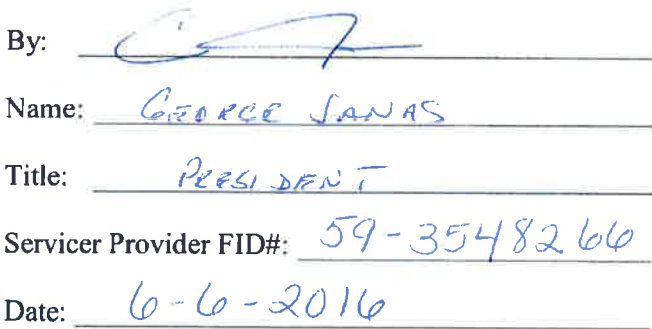 By:
Name: GEORGE SANAS
Title: PRESIDENT
Servicer Provider FID#: 59-3548266
Date: 6-6-2016